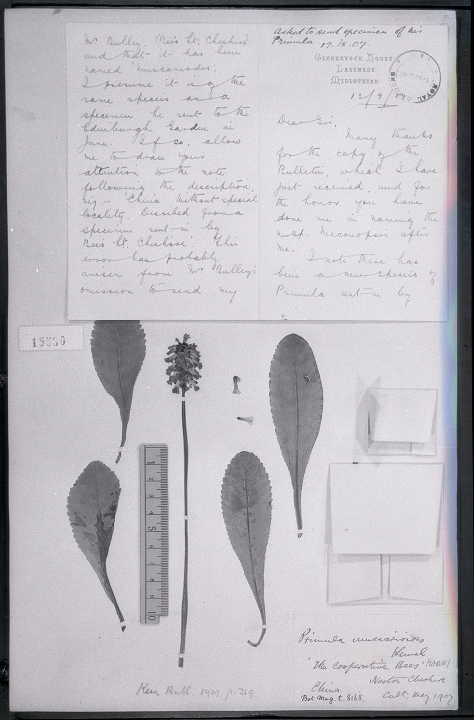 asked to send specimen of his
Primula 17.IX.07.
Glenkevock House
Lasswade
Midlothian
12/9/07
Dear Sir,
Many thanks
for the copy of the
Bulletin, which I have
just received, and for
the honor you have
done me in naming the
n.sp. Meconopsis after
me.
I note there has
been a new species of
Primula sent in by
Mr Bulley (Bees Lt. Cheshire)
and that it has been
named 'muscarioides'.
I presume it is of the
same species as a
specimen he sent to the
Edinburgh Garden in
June. If so, allow
me to draw your
attention to the note
following the description,
viz,- "China without special
locality. Described from a
specimen sent in by
Bees Lt. Cheshire." This
error has probably
arisen from Mr Bulley's
omission to send my
15630
1
2
3
4
5
6
7
8
9
10
Primula muscarioides
Hemsl
"The Cooperative Bees"
Neston Cheshire
China Cult. May 1907
Bot Mag t. 8168.
Kew Bull. 1907. p. 319.